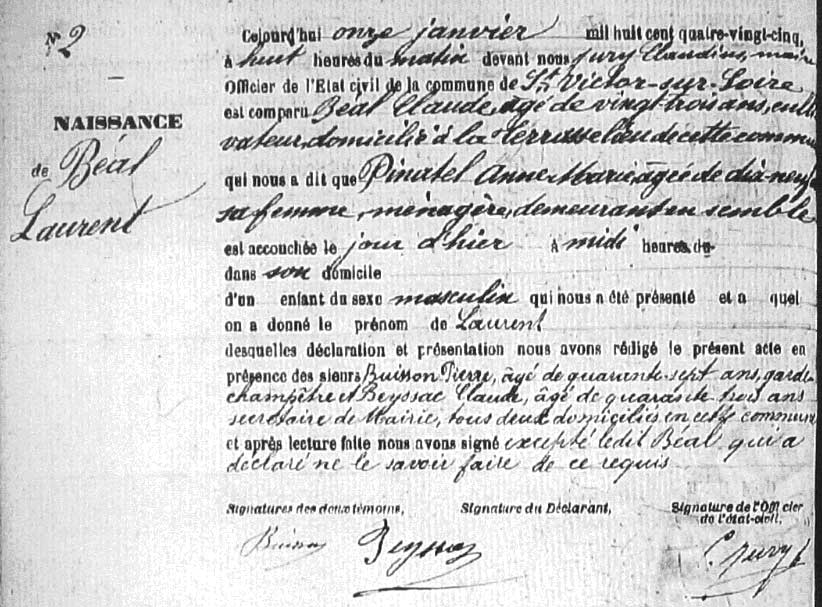 N° 2
NAISSANCE
de Béal
Laurent
Cejourd'hui onze janvier mil huit cent quatre-vingt-cinq,
à huit heures du matin devant nous Jury Claudius, maire
Officier de l'Etat civil de la commune de St Victor-sur-Loire
est comparu Béal Claude, âgé de vingt-trois ans, culti
vateur, domicilié à la Terrasse lieu de cette commune
qui nous a dit que Pinatel Anne Marie, âgée de dix-neuf
sa femme, ménagère, demeurant en semble
est accouchée le jour d'hier à midi heures du
dans son domicile
d'un enfant du sexe masculin qui nous a été présenté et a quel
on a donné le prénom de Laurent
desquelles déclaration et présentation nous avons rédigé le présent acte en
présence des sieurs Buisson Pierre, âgé de quarante-sept ans, garde
champêtre et Beyssac Claude, âgé de quarante trois ans
secrétaire de Mairie, tous deux domiciliés en cette commune
et après lecture faite nous avons signé excepté ledit Béal qui a
déclaré ne le savoir faire de ce requis
Signatures des deux témoins, Signature du Déclarant, Signature de l'Officier
de l'état-civil,
Buisson Beyssac C. Jury